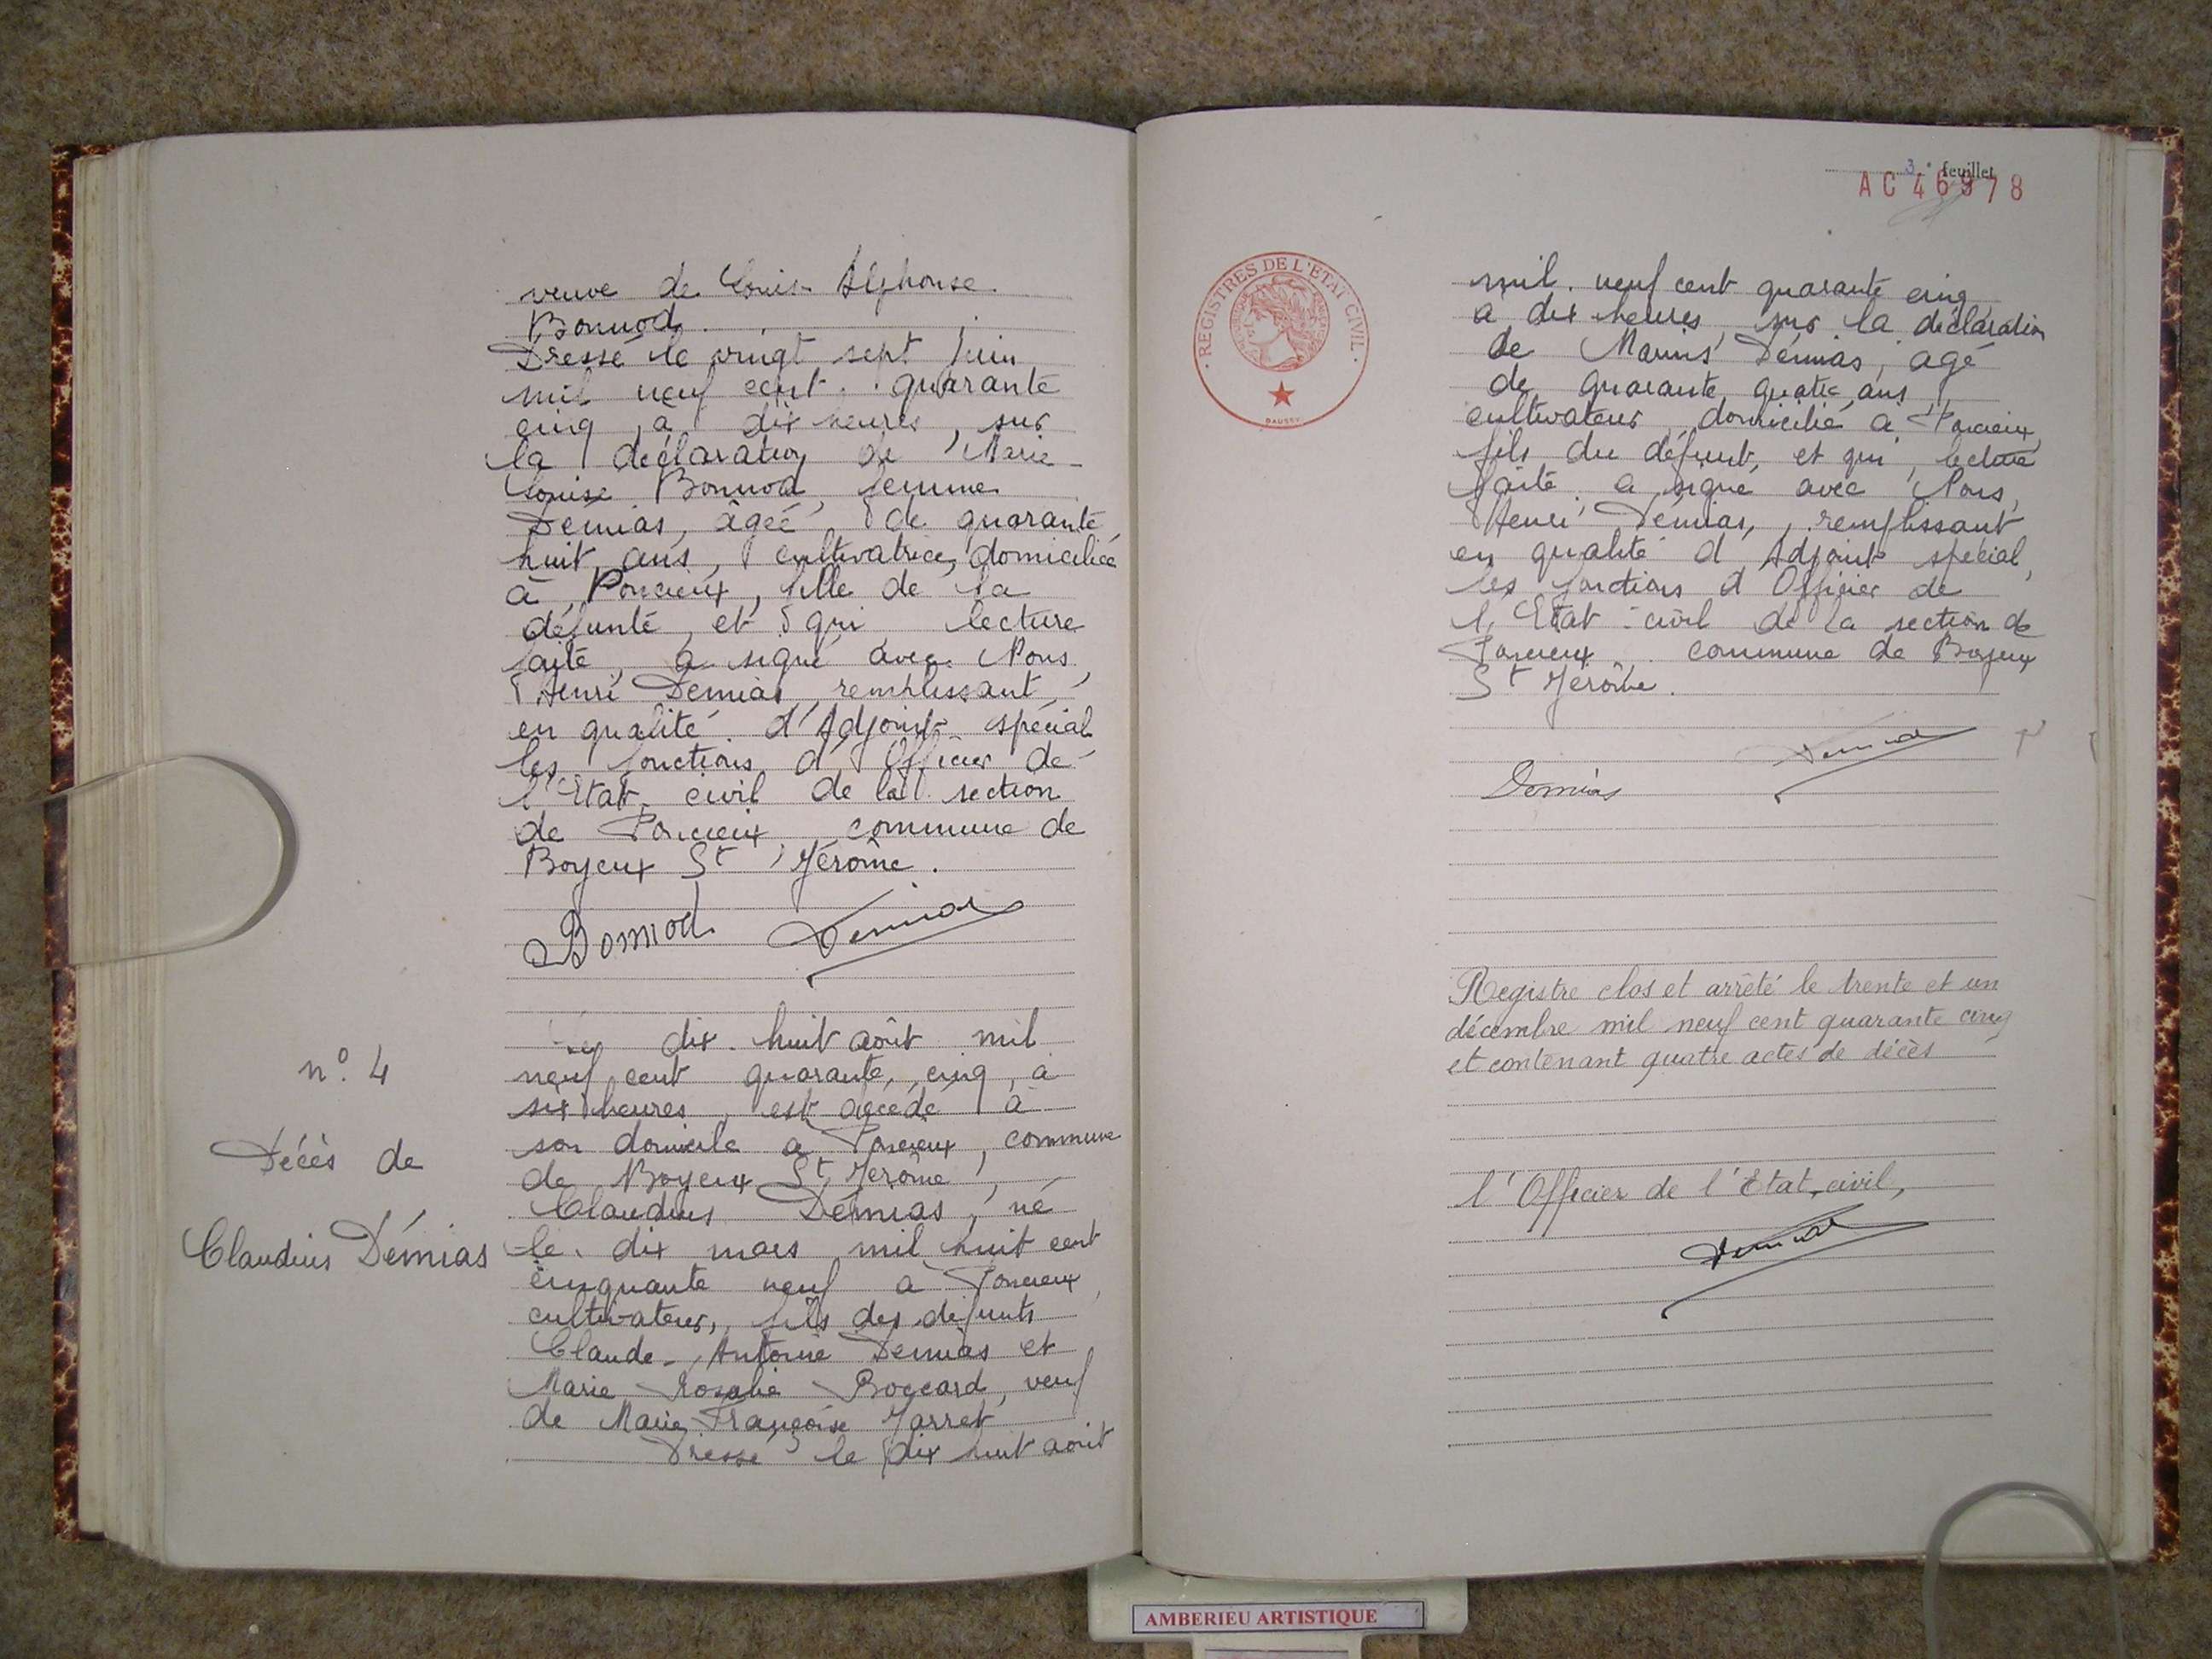 veuve de Louis Alphonse
Bonnod.
Dressé le vingt sept juin
mil neuf cent quarante
cinq, à dix heures, sur
la déclaration de Marie
Louise Bonnod, femme
Démias, âgée de quarante
huit ans, cultivatrice, domiciliée
à Poncieux, fille de la
défunte, et qui lecture
faite, a signé avec Nous,
Henri Démias, remplissant
en qualité d'Adjoint spécial
les fonctions d'Officier de
l'Etat civil de la section
de Poncieux, commune de
Boyeux St Jérôme.
Bonnod Démias
n° 4
Décès de
Claudius Démias
Le dix huit août mil
neuf cent quarante cinq, à
six heures, est décédé à
son domicile à Poncieux, commune
de Boyeux St Jérôme,
Claudius Démias, né
le dix mars mil huit cent
cinquante neuf à Poncieux,
cultivateur, fils des défunts
Claude-Antoine Démias et
Marie Rosalie Boccard, veuf
de Marie Françoise Jarret
Dressé le dix huit août
3e feuillet
AC 46978
REGISTRES DE L'ETAT CIVIL
mil neuf cent quarante cinq
à dix heures, sur la déclaration
de Marius Démias, agé
de quarante quatre ans,
cultivateur, domicilié à Poncieux,
fils du défunt, et qui, lecture
faite a signé avec Nous,
Henri Démias, remplissant
en qualité d'Adjoint spécial,
les fonctions d'Officier de
l'Etat-civil de la section de
Poncieux commune de Boyeux
St Jérôme.
Démias Démias
Registre clos et arrêté le trente et un
décembre mil neuf cent quarante cinq
et contenant quatre actes de décès
l'Officier de l'Etat-civil,
Démias
AMBERIEU ARTISTIQUE